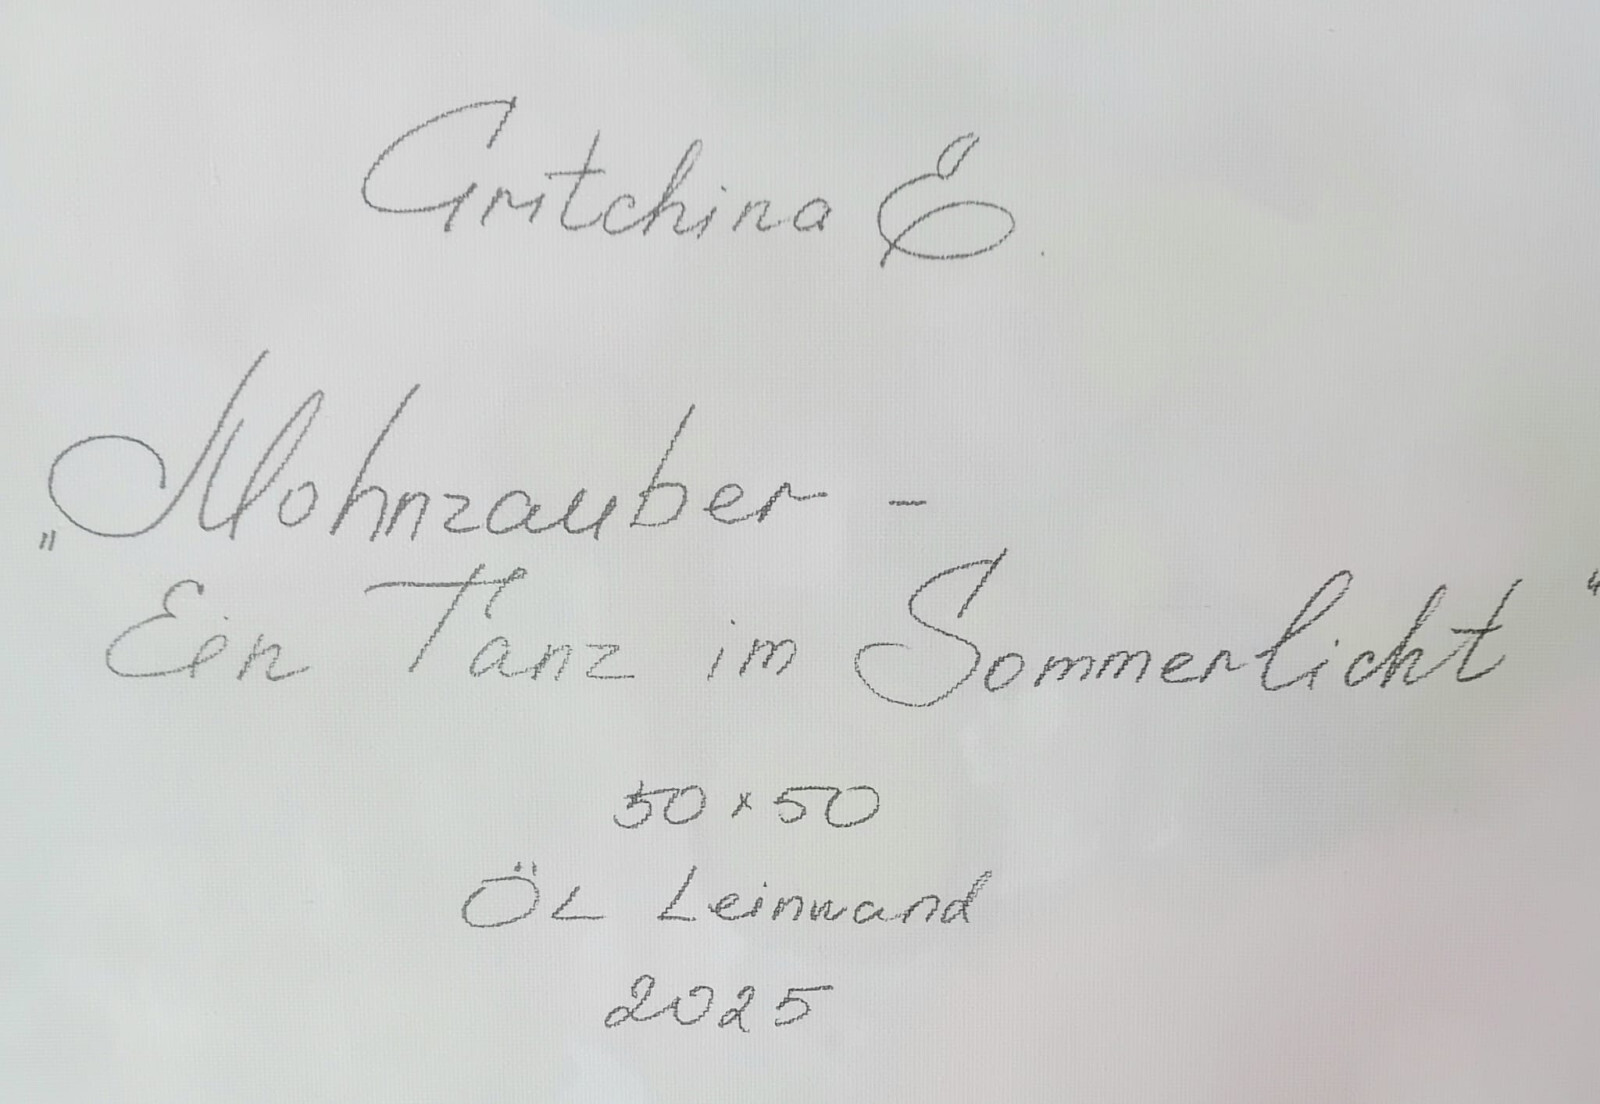 Gritchina E.
„Mohnzauber -
Ein Tanz im Sommerlicht“
50 x 50
ÖL Leinwand
2025